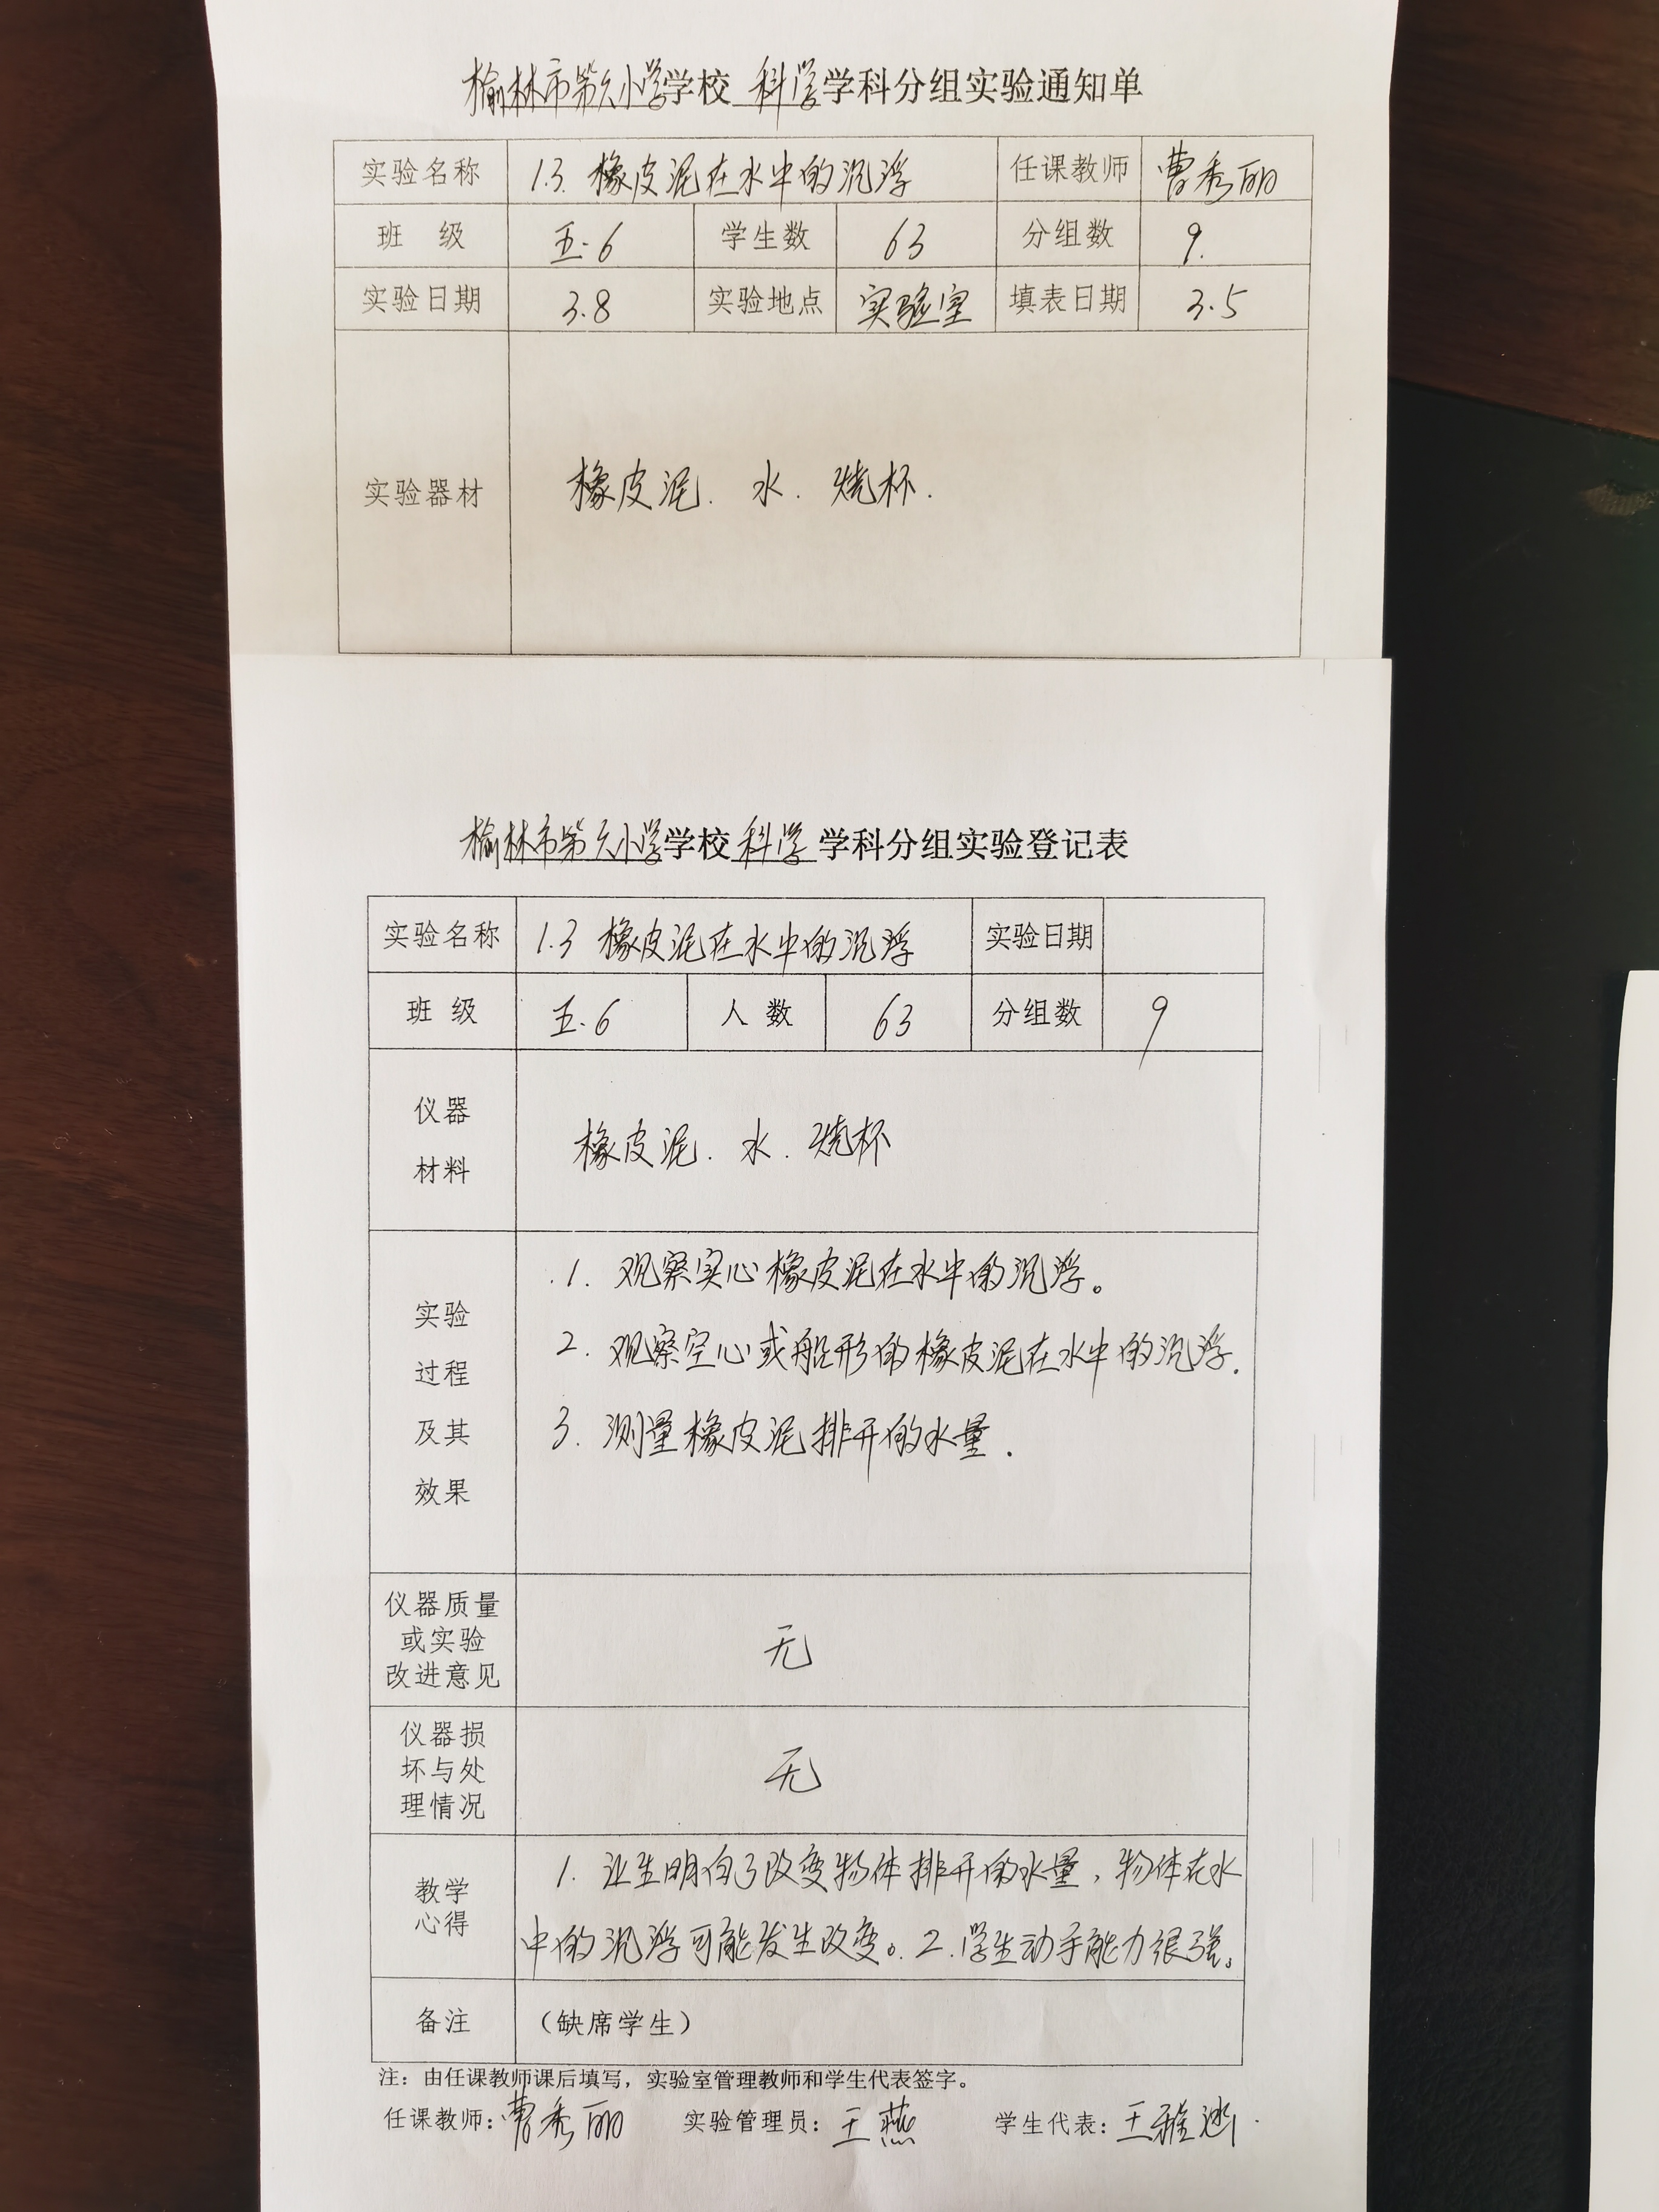 榆林市第六小学学校 科学学科分组实验通知单
实验名称 1.3. 橡皮泥在水中的沉浮 任课教师 曹秀丽
班 级 五.6 学生数 63 分组数 9.
实验日期 3.8 实验地点 实验室 填表日期 3.5
实验器材 橡皮泥. 水. 烧杯.
榆林市第六小学学校 科学 学科分组实验登记表
实验名称 1.3 橡皮泥在水中的沉浮 实验日期
班 级 五.6 人 数 63 分组数 9
仪器
材料
橡皮泥. 水. 烧杯
实验
过程
及其
效果
1. 观察实心橡皮泥在水中的沉浮。
2. 观察空心或船形的橡皮泥在水中的沉浮.
3. 测量橡皮泥排开的水量.
仪器质量
或实验
改进意见
无
仪器损
坏与处
理情况
无
教学
心得
1. 让生明白了改变物体排开的水量,物体在水
中的沉浮可能发生改变。2.学生动手能力很强。
备注 (缺席学生)
注:由任课教师课后填写,实验室管理教师和学生代表签字。
任课教师:曹秀丽 实验管理员:王燕 学生代表:王雅